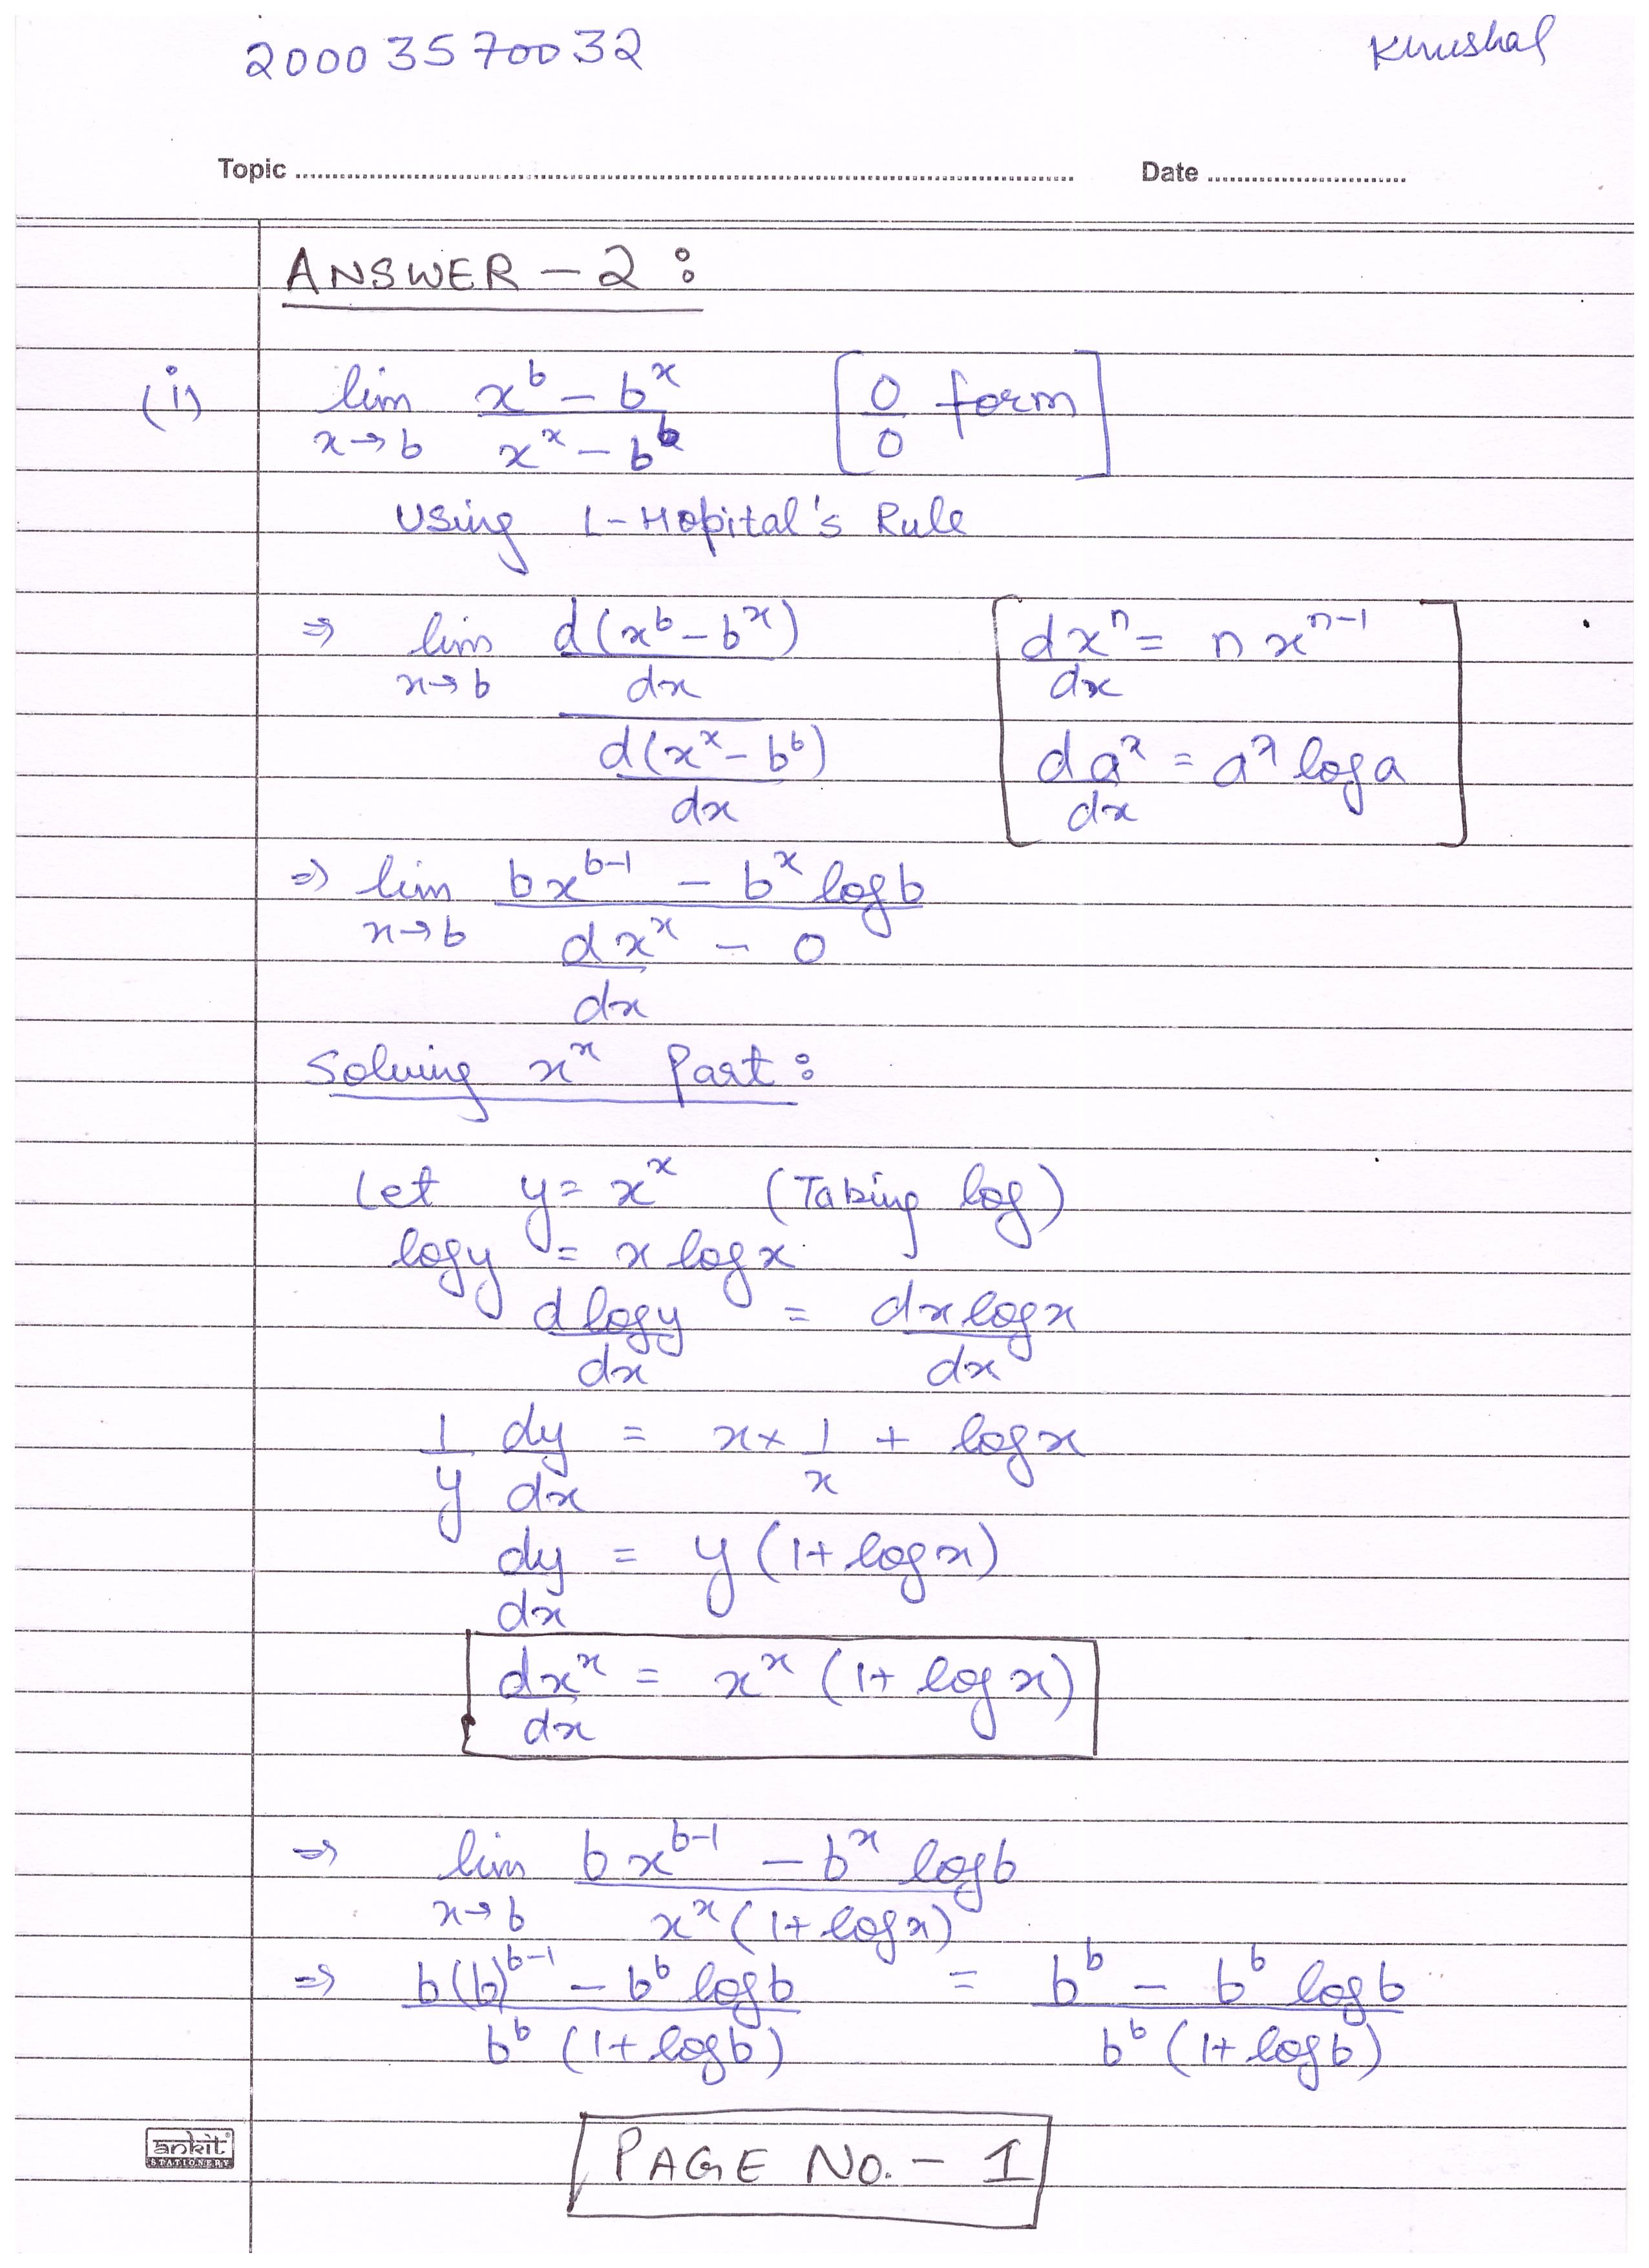 20003570032 Khushal
Topic ........ Date ........
ANSWER - 2 :
(i) lim x→b (x^b - b^x)/(x^x - b^b) [0/0 form]
Using L-Hopital's Rule
⇒ lim x→b (d(x^b - b^x)/dx)/(d(x^x - b^b)/dx) [dx^n/dx = n x^(n-1)
da^x/dx = a^x log a]
⇒ lim x→b (bx^(b-1) - b^x log b)/(dx^x/dx - 0)
Solving x^x Part :
Let y = x^x (Taking log)
log y = x log x
d log y/dx = dx log x/dx
1/y dy/dx = x × 1/x + log x
dy/dx = y (1 + log x)
dx^x/dx = x^x (1 + log x)
⇒ lim x→b (b x^(b-1) - b^x log b)/(x^x (1 + log x))
⇒ (b(b)^(b-1) - b^b log b)/(b^b (1 + log b)) = (b^b - b^b log b)/(b^b (1 + log b))
ankit
STATIONERY
PAGE NO. - 1